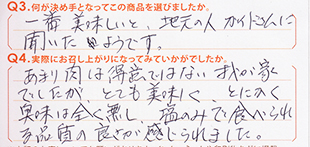 Q3.何が決め手となってこの商品を選びましたか。
一番 美味しいと、地元の人 ガイドさんに
聞いた ようです。
Q4.実際にお召し上がりになってみていかがでしたか。
あまり肉は得意ではない 我が家
でしたが、とても美味しく、とにかく
臭味は全く無し、塩のみで食べられ
る品質の良さが感じられました。